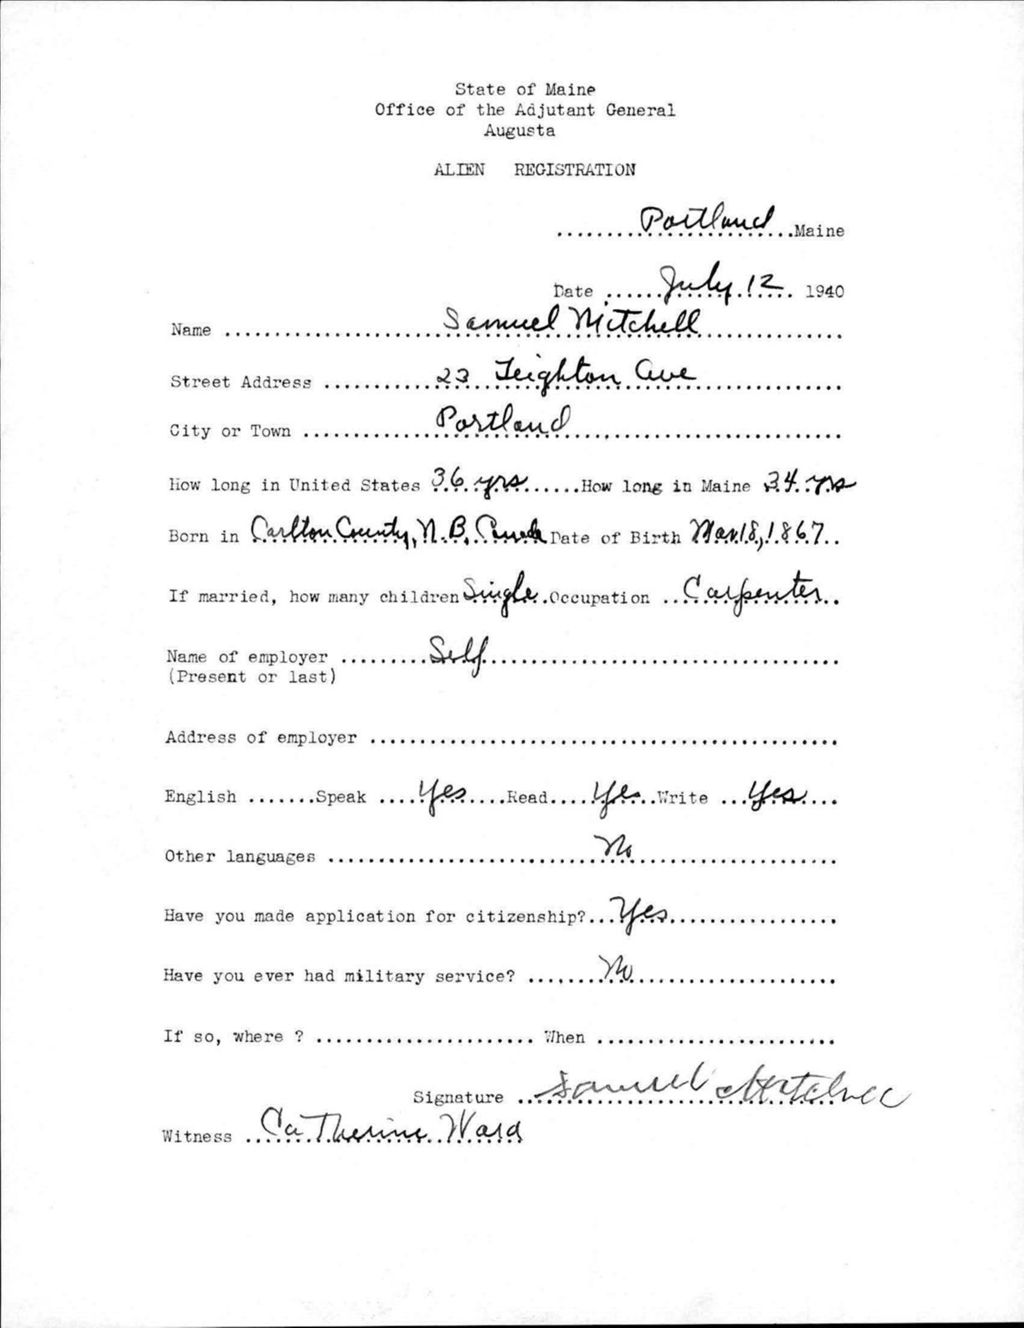 State of Maine
Office of the Adjutant General
Augusta
ALIEN REGISTRATION
.........Portland..Maine
Date ......July 12.. 1940
Name ......................Samuel Mitchell.................
Street Address ...........23 Leighton Ave.................
City or Town .............Portland...........................
How long in United States 36 yrs......How long in Maine 34 yrs
Born in Carlton County, N.B. Date of Birth Mar. 18, 1867..
If married, how many children Single.Occupation ..Carpenter..
Name of employer .........Self....................................
(Present or last)
Address of employer ................................................
English .......Speak ....Yes....Read....Yes..Write ...Yes....
Other languages ...........................No.....................
Have you made application for citizenship?...Yes.................
Have you ever had military service? ........No.....................
If so, where ? ...................... When ........................
Signature ..Samuel Mitchell
Witness ..Catherine Ward